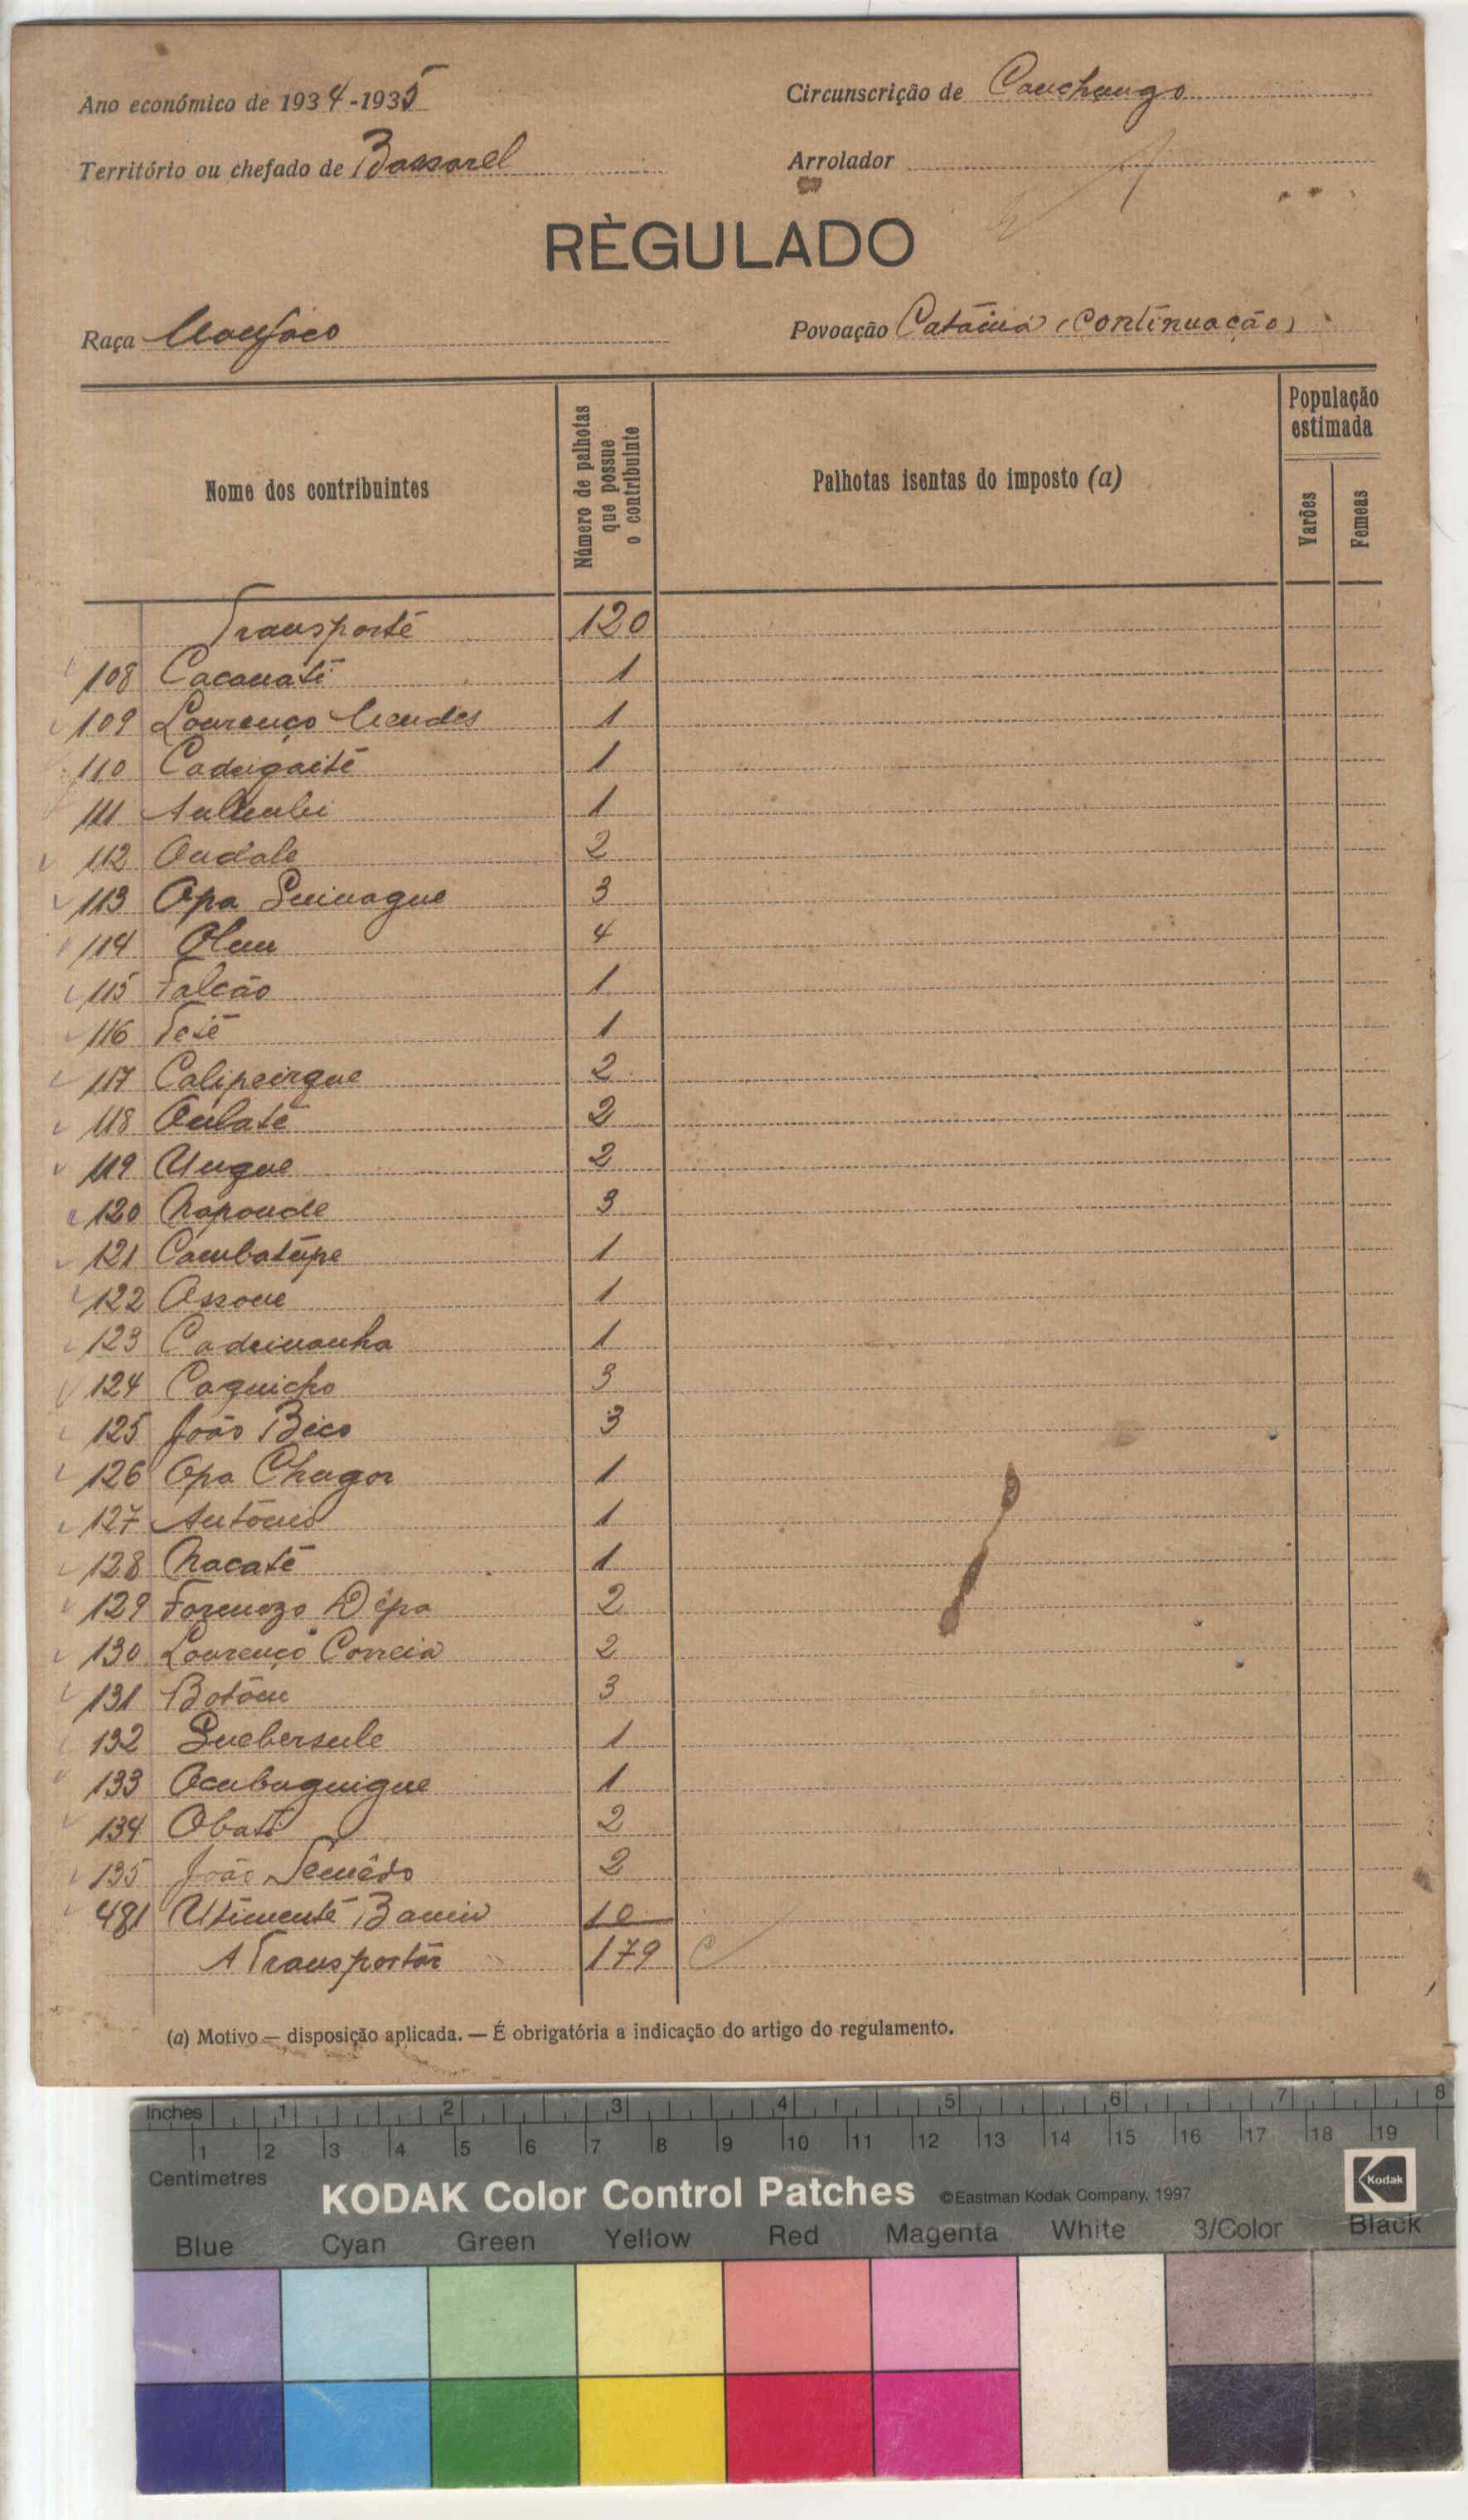 Ano económico de 1934-1935
Circunscrição de Canchungo
Território ou chefado de Bassarel
Arrolador
RÈGULADO
Raça Manjaco
Povoação Catãma (Continuação)
Nome dos contribuintes
Número de palhotas que possue o contribuinte
Palhotas isentas do imposto (a)
População estimada
Varões
Femeas
Transporte 120
108 Cacanati 1
109 Lourenço Mendes 1
110 Cadugaité 1
111 1
112 Ondale 2
113 Opa Quinague 3
114 4
115 Falcão 1
116 1
117 Calipeingue 2
118 2
119 Ungue 2
120 Naponde 3
121 Cambatupe 1
122 Assone 1
123 Cadeinanha 1
124 Caquicho 3
125 João Bico 3
126 Opa Chugor 1
127 António 1
128 Nacaté 1
129 2
130 Lourenço Correia 2
131 Botõm 3
132 Quebersule 1
133 1
134 Obati 2
135 João Semêdo 2
481 Utimenté 10
A Transportar 179
(a) Motivo — disposição aplicada. — É obrigatória a indicação do artigo do regulamento.
Inches 1 2 3 4 5 6 7 8
1 2 3 4 5 6 7 8 9 10 11 12 13 14 15 16 17 18 19
Centimetres
KODAK Color Control Patches ©Eastman Kodak Company, 1997 Kodak
Blue Cyan Green Yellow Red Magenta White 3/Color Black